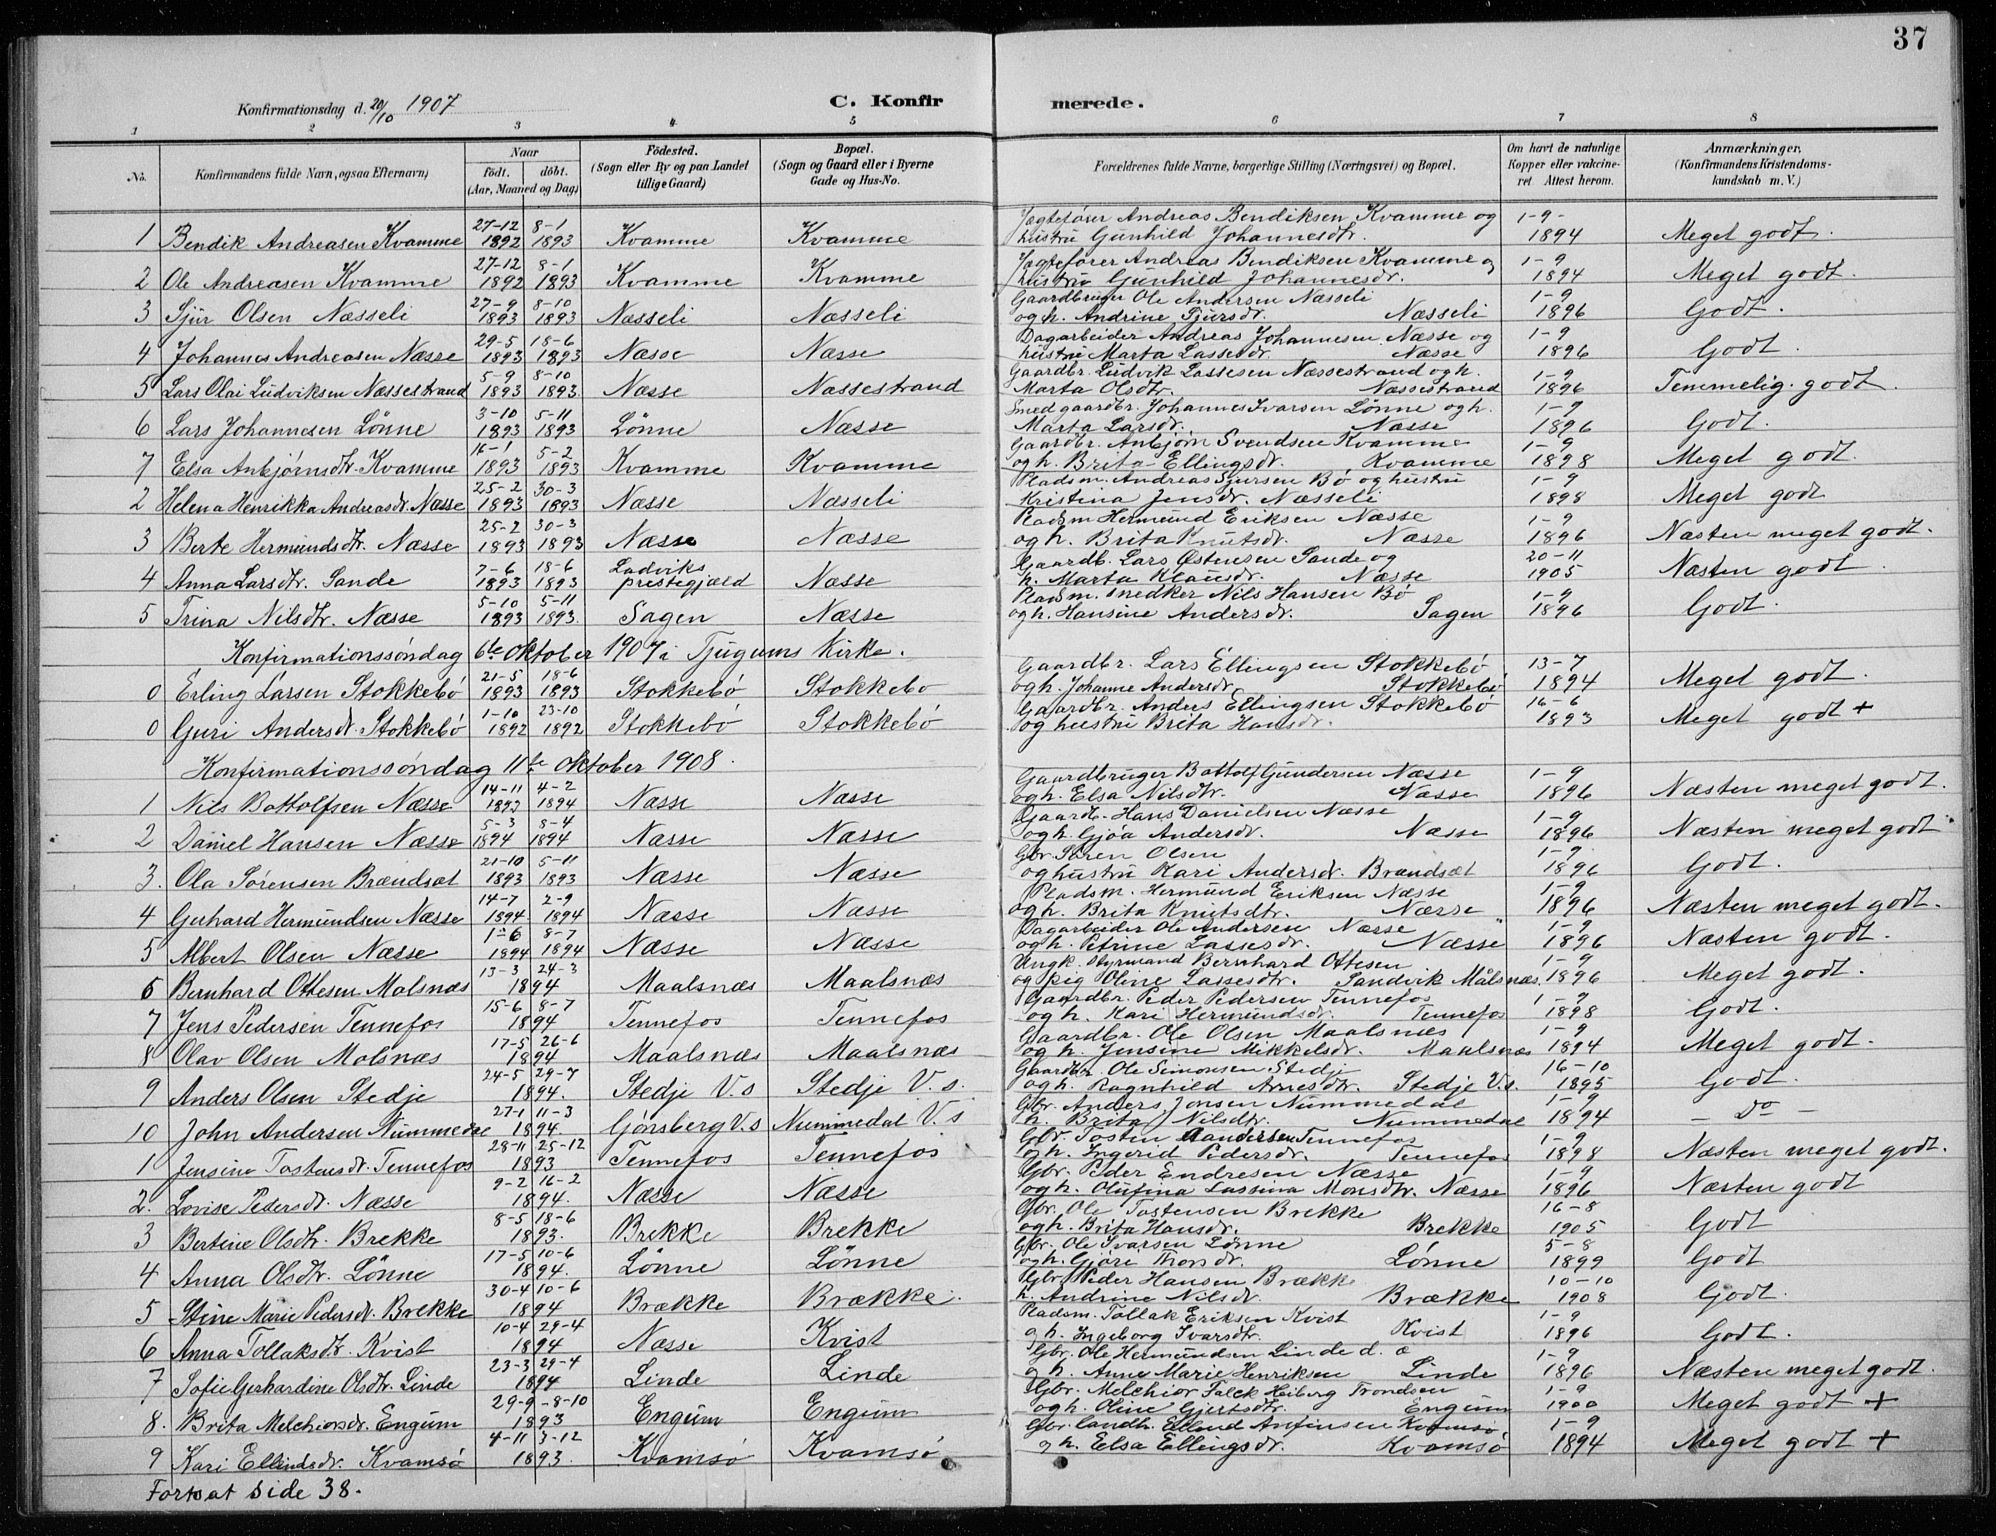 37
Konfirmationsdag d. 20/10 1907
C. Konfirmerede.
1 2 3 4 5 6 7 8
No. Konfirmandens fulde Navn, ogsaa Efternavn) Naar født. døbt. (Aar, Maaned og Dag) Födested. (Sogn eller By og paa Landet tillige Gaard) Bopæl. (Sogn og Gaard eller i Byerne Gade og Hus-No. Forældrenes fulde Navne, borgerlige Stilling (Næringsvei) og Bopæl. Om havt de naturlige Kopper eller vakcineret Attest herom. Anmærkninger. (Konfirmandens Kristendomskundskab m. V.)
1 Bendik Andreasen Kvamme 27-12 1892 8-1 1893 Kvamme Kvamme Jægtefører Andreas Bendiksen Kvamme og hustru Gunhild Johannesdtr. 1-9- 1894 Meget godt.
2 Ole Andreasen Kvamme 27-12 1892 8-1 1893 Kvamme Kvamme Jægtefører Andreas Bendiksen Kvamme og hustru Gunhild Johannesdr. 1-9 1894 Meget godt.
3 Sjur Olsen Næsseli 27-9 1893 8-10 1893 Næsseli Næsseli Gaardbruger Ole Andersen Næsseli og h. Andrine Sjursdr. Næsseli 1-9 1896 Godt.
4 Johannes Andreasen Næsse 29-5 1893 18-6 1893 Næsse Næsse Dagarbeider Andreas Johannesen Næsse og hustru Marta Lassesdr. Næsse 1-9 1896 Godt.
5 Lars Olai Ludviksen Næssestrand 5-9 1893 8-10 1893 Næsse Næssestrand Gaardbr. Ludvik Lassesen Næssestrand og h. Marta Olsdtr. Næssestrand 1-9 1896 Temmelig godt.
6 Lars Johannesen Lønne 3-10 1893 5-11 1893 Lønne Næsse Smed gaardbr. Johannes Ivarsen Lønne og h. Marta Larsdr. Næsse 1-9 1896 Godt.
7 Elsa Anbjørnsdtr. Kvamme 16-1 1893 5-2 1893 Kvamme Kvamme Gaardbr. Anbjørn Svendsen Kvamme og h. Brita Ellingsdr. Kvamme 1-9 1898 Meget godt.
2 Helena Henrikka Andreasdr. Næsse 25-2 1893 30-3 1893 Næsse Næsseli Pladsm. Andreas Sjursen Bø og hustru Kristina Jensdr. Næsseli 1-9 1898 Meget godt
3 Berte Hermundsdtr. Næsse 25-2 1893 30-3 1893 Næsse Næsse Pladsm Hermund Eriksen Næsse og h. Brita Knutsdr. Næsse 1-9 1896 Næsten meget godt.
4 Anna Larsdtr. Sande 7-6 1893 18-6 1893 Ladviks prestegjæld Næsse Gaardb. Lars Østensen Sande og h. Marta Klausdr. Næsse 20-11 1905 Næsten godt.
5 Trina Nilsdtr. Næsse 5-10 1893 5-11 1893. Sagen Næsse Pladsm. snedker Nils Hansen Bø og h. Hansine Andersdr. Sagen 1-9 1896 Godt.
Konfirmationssøndag 6te Oktober 1907 i Tjugums Kirke.
0 Erling Larsen Stokkebø 21-5 1893 18-6 1893 Stokkebø Stokkebø Gaardbr. Lars Ellingsen Stokkebø og h. Johanne Andersdr. Stokkebø 13-7 1894 Meget godt.
0 Guri Andersdr. Stokkebø 1-10 1892 23-10 1892 Stokkebø Stokkebø Gaardbr. Anders Ellingsen Stokkebø og hustru Brita Hansdr. 16-6 1893 Meget godt +
Konfirmationssøndag 11te Oktober 1908.
1 Nils Bottolfsen Næsse 14-11 1893 4-2 1894 Næsse Næsse Gaardbruger Bottolf Gundersen Næsse og h. Elsa Nilsdtr. Næsse 1-9 1896 Næsten meget godt.
2 Daniel Hansen Næsse 5-3 1894 8-4 1894 Næsse Næsse Gaardb. Hans Danielsen Næsse og h. Gjøa Andersdr. Næsse 1-9 1896 Næsten meget godt
3. Ola Sørensen Brændsæt 21-10 1893 5-11 1893 Næsse Næsse Gbr. Søren Olsen og hustru Kari Andersdr. Brændsæt 1-9. 1896 Godt.
4 Gerhard Hermundsen Næsse 14-7 1894 2-9 1894 Næsse Næsse Pladsm. Hermund Eriksen Næsse og h. Brita Knutsdtr. Næsse 1-9 1896 Næsten meget godt.
5 Albert Olsen Næsse 1-6 1894 8-7 1894 Næsse Næsse Dagarbeider Ole Andersen Næsse og h. Petrine Lassesdr. Næsse 1-9 1896 Næsten godt.
6 Bernhard Ottesen Målsnæs 13-3 24-3 1894 Maalsnæs Maalsnæs Ungk. styrmand Bernhard Ottesen og pig Oline Lassesdtr. Sandvik Målsnæs. 1-9 1896 Meget godt.
7 Jens Pedersen Tennefos 15-6 8-7 1894 Tennefos Tennefos Gaardbr. Peder Pedersen Tennefos og h. Kari Hermundsdr. Tennefos 1-9 1898 Godt.
8 Olav Olsen Målsnæs 17-5 26-6 1894 Maalsnæs Maalsnæs Gaardbr. Ole Olsen Maalsnæs og h. Jensine Mikkelsdr. Maalsnæs 1-9 1894 Meget godt.
9 Anders Olsen Stedje 24-5 29-7 1894. Stedje V. s Stedje V. s. Gaardbr. Ole Simonsen Stedje og h. Ragnhild Arnesdtr. Stedje V.s. 16-10 1895 Godt.
10 John Andersen Nummedal 27-1 11-3 1894. Gjønsberg V.s Nummedal V. s Gbr. Anders Jonsen Nummedal h. Brita Nilsdtr. Nummedal 1-9 1894 - do -
1 Jensine Tostensdr. Tennefos 28-11 25-12 1893 Tennefos Tennefos Gbr. Tosten Aandersen Tennefos og h. Ingerid Pedersdr. Tennefos 1-9 1898 Næsten meget godt.
2. Lovise Pedersdr. Næsse 9-2 16-2 1894. Næsse Næsse Gbr. Peder Endresen Næsse og h. Olufina Lassina Monsdtr. Næsse 1-9 1896 Næsten godt
3 Bertine Olsdtr. Brekke 8-5 18-6 1893. Brekke Brekke Gbr. Ole Tostensen Brekke og h. Brita Hansdr. Brekke 16-8 1905 Godt
4 Anna Olsdtr. Lønne 17-5 10-6 1894. Lønne Lønne Gbr. Ole Ivarsen Lønne og h. Gjøre Thorsdr. Lønne 5-8 1899 Godt
5 Stine Marie Pedersdr. Brekke 30-4 10-6 1894 Brække Brække. Gbr. Peder Hansen Brække h. Andrine Nilsdr. Brække 10-10 1908 Godt.
6 Anna Tollaksdtr. Kvist 10-4 29-4 1894 Næsse Kvist Pladsm. Tollak Eriksen Kvist og h. Ingeborg Ivarsdtr. Kvist 1-9 1896 Godt.
7 Sofie Gerhardine Olsdtr. Linde 23-3 29-4 1894 Linde Linde Gbr. Ole Hermundsen Linde d. æ og h. Anne Marie Henriksen Linde 1-9 1896 Næsten meget godt.
8. Brita Melchiorsdr. Engum 29-9 -8-10 1893 Engum Engum Gbr. Melchior Falck Heiberg Trondsen og h. Oline Gjertsdtr. Engum 1-9 1900 Meget godt +
9 Kari Ellendsdr. Kvamsø 4-11 3-12 1893. Kvamsø Kvamsø Gbr. landh. Ellend Anfinsen Kvamsø og h. Elsa Ellingsdr. Kvamsø 1-9 1894 Meget godt +
Fortsat side 38.